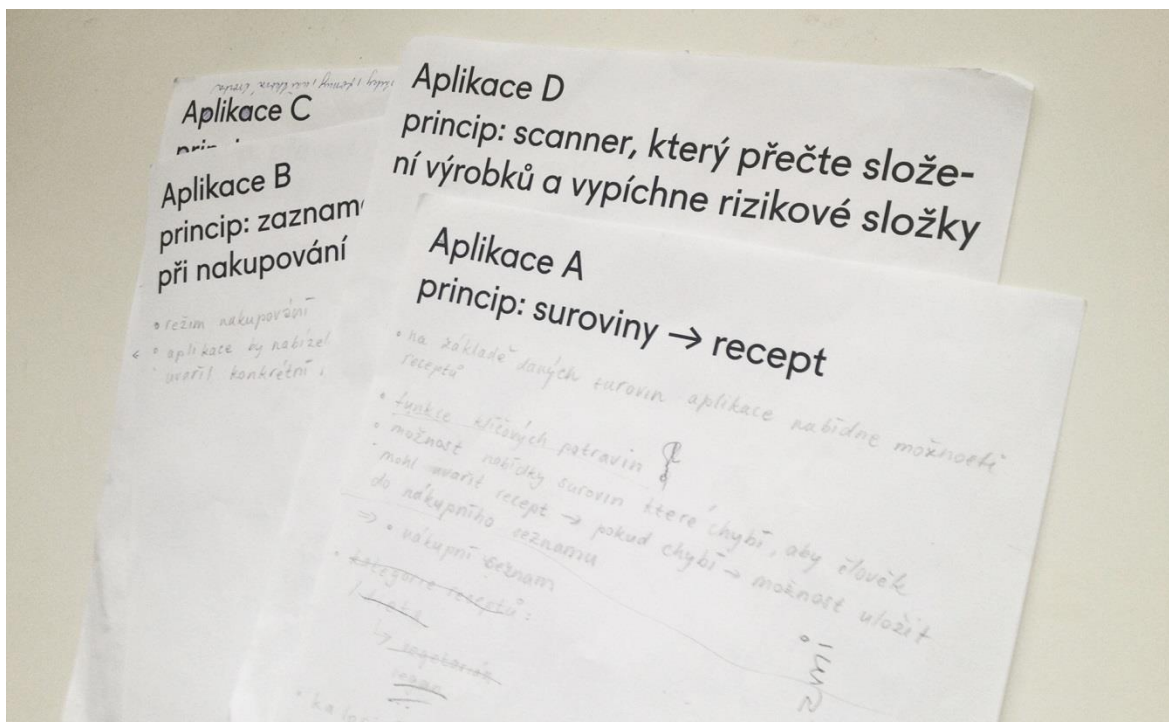 Aplikace C
Aplikace B
princip: zaznam
při nakupování
• režim nakupování
• aplikace by nabízel
uvařil konkrétní
Aplikace D
princip: scanner, který přečte slože-
ní výrobků a vypíchne rizikové složky
Aplikace A
princip: suroviny → recept
• na základě daných surovin aplikace nabídne možnosti
receptů
• funkce klíčových potravin
• možnost nabídky surovin které chybí, aby člověk
mohl uvařit recept → pokud chybí → možnost uložit
do nákupního seznamu
⇒ • nákupní seznam
• kategorie receptů: